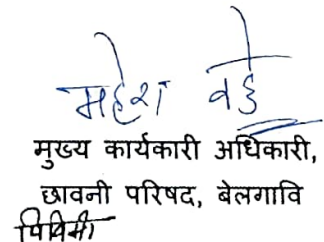 महेश वडे
मुख्य कार्यकारी अधिकारी,
छावनी परिषद, बेलगावि